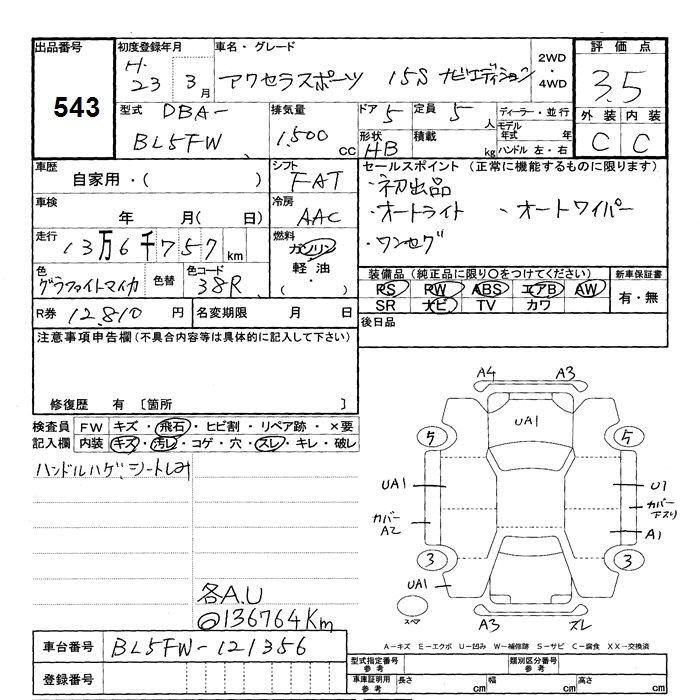 出品番号 初度登録年月 車名・グレード 2WD・4WD 評価点
543
H.23 3月 アクセラスポーツ 15S ナビエディション 3.5
型式 DBA- 排気量 ドア 5 定員 5人 ディーラー・並行 外装 内装
BL5FW 1.500cc 形状 HB 積載 kg モデル年式 年 ハンドル 左・右 C C
車歴 シフト セールスポイント (正常に機能するものに限ります)
自家用・( ) FAT ・初出品
車検 冷房 ・オートライト 、オートワイパー
年 月( 日) AAC ・ワンセグ
走行 燃料
13万6千757km ガソリン
軽油
・
色 色替 色コード 装備品(純正品に限り○をつけてください) 新車保証書
グラファイトマイカ 38R PS PW ABS エアB AW 有・無
SR ナビ TV カワ
R券 12.810円 名変期限 月 日 後日品
注意事項申告欄(不具合内容等は具体的に記入して下さい)
修復歴 有 〔箇所 〕
検査員 FW キズ・飛石・ヒビ割・リペア跡・×要
記入欄 内装 キズ・汚レ・コゲ・穴・スレ・キレ・破レ
ハンドルハゲ、シートしみ
各A.U
◎136764Km
A4 A3
UA1
5 5
UA1 U1
カバー下スリ
カバーA2 A1
3 3
UA1
スペア A3 ズレ
車台番号 BL5FW-121356
A-キズ E-エクボ U-凹み W-補修跡 S-サビ C-腐食 XX-交換済
登録番号 型式指定番号参考 類別区分番号参考
車庫証明用参考 長さ cm 幅 cm 高さ cm